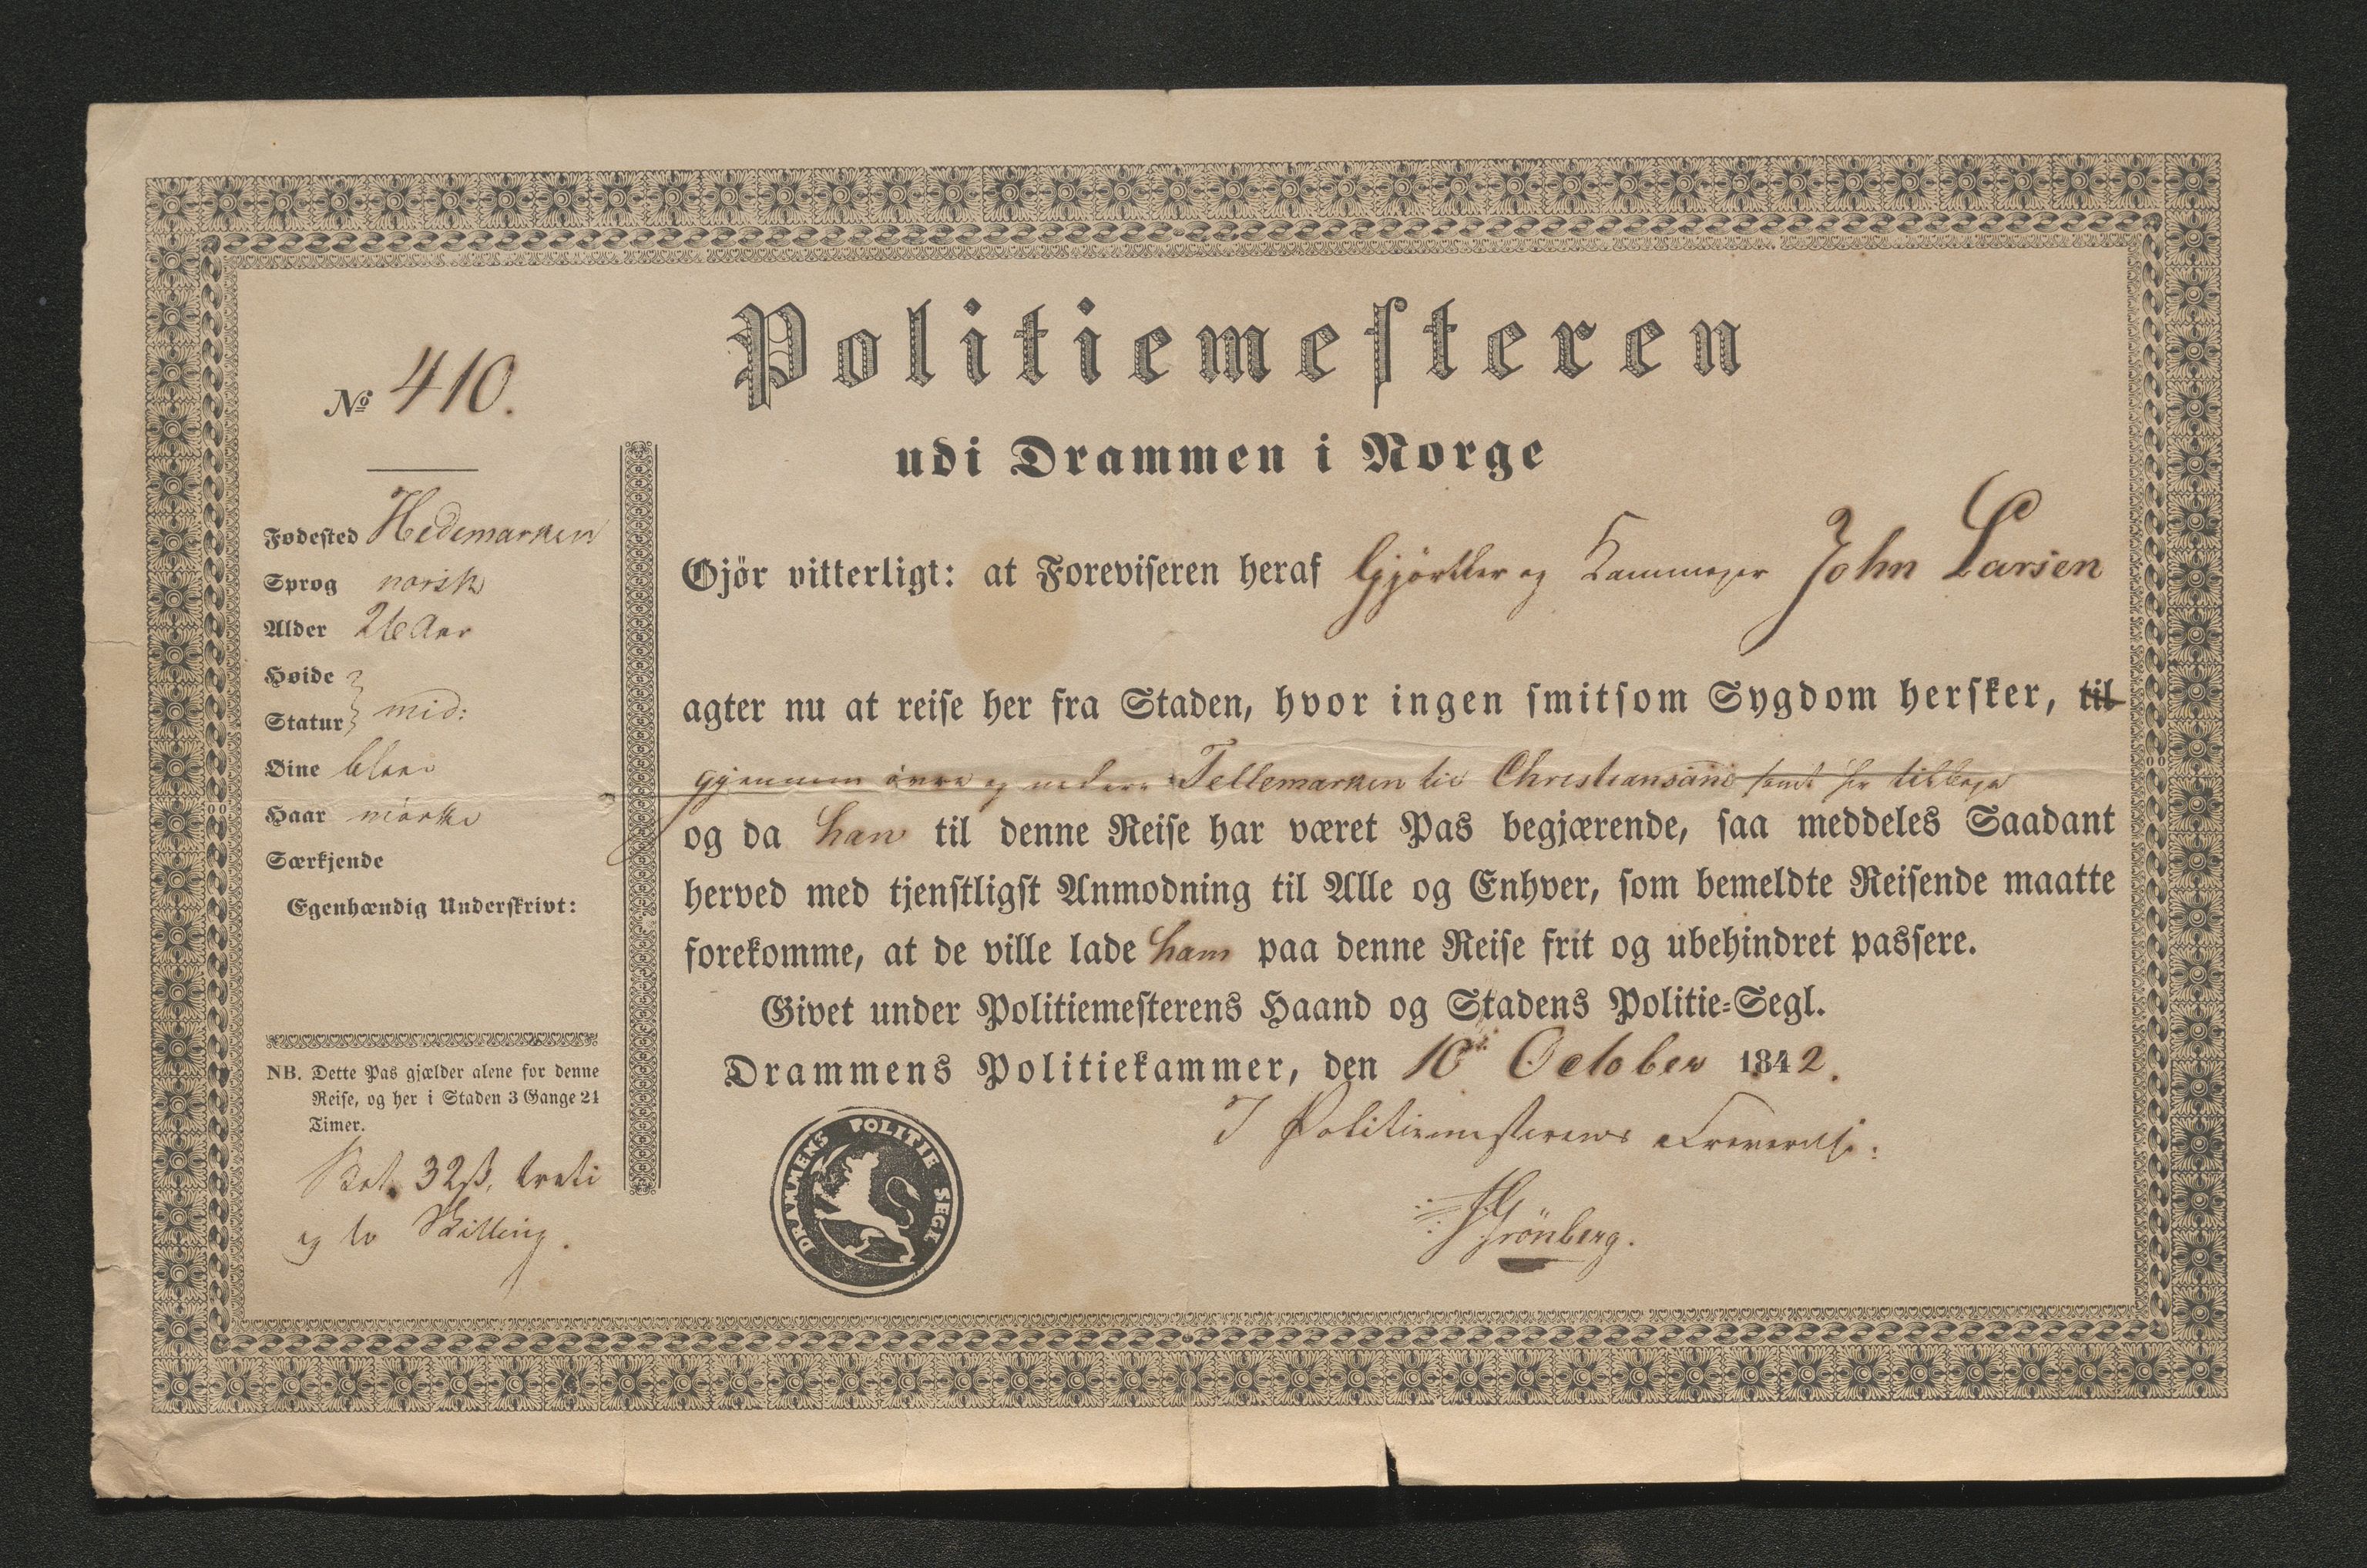 Politiemesteren
udi Drammen i Norge
No 410.
Fødested Hedemarken
Sprog norsk
Alder 26 Aar
Høide
Statur mid:
Øine blaae
Haar mørke
Særkjende
Egenhændig Underskrivt:
NB. Dette Pas gjælder alene for denne
Reise, og her i Staden 3 Gange 24
Timer.
Bet. 32ß, treti
og to Skilling.
Gjör vitterligt: at Foreviseren heraf Gjørtler og Kammager John Larsen
agter nu at reise her fra Staden, hvor ingen smitsom Sygdom hersker, til
gjennem øvre og nedere Tellemarken til Christiansand samt her tilbage
og da han til denne Reise har været Pas begjærende, saa meddeles Saadant
herved med tjenstligst Anmodning til Alle og Enhver, som bemeldte Reisende maatte
forekomme, at de ville lade ham paa denne Reise frit og ubehindret passere.
Givet under Politiemesterens Haand og Stadens Politie-Segl.
Drammens Politiekammer, den 10de October 1842.
I Politiemesterens Fraværelse:
Grönberg.
DRAMMENS POLITIE SEGL